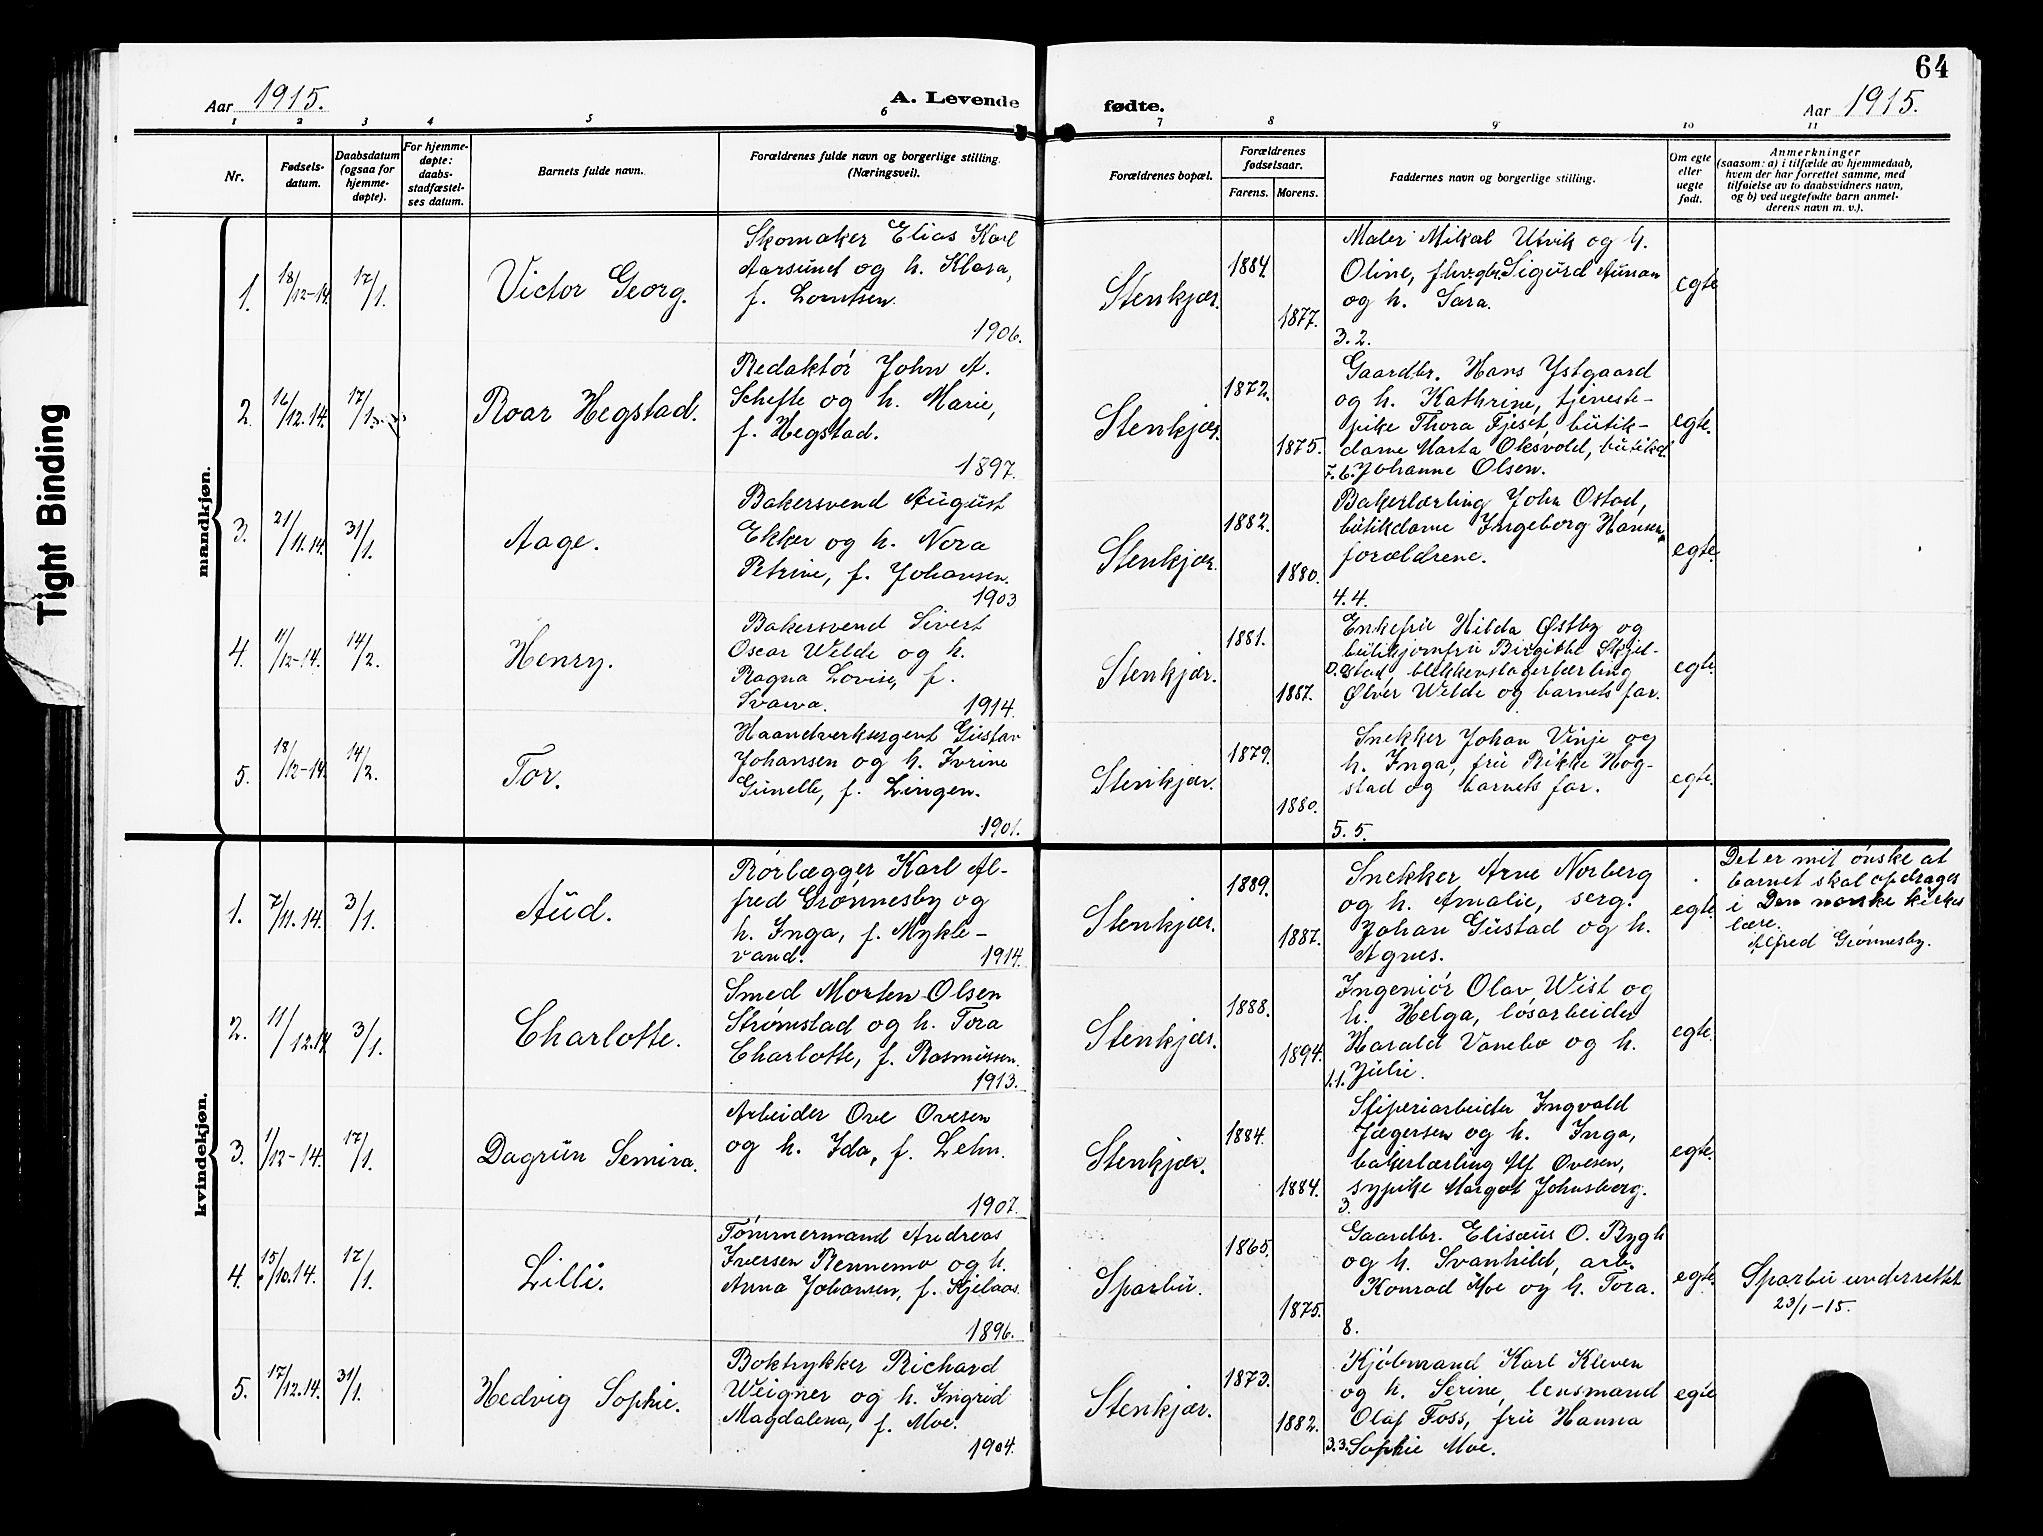 64
Aar 1915.
A. Levende
fødte.
Aar 1915.
1 2 3 4 5 6 7 8 9 10 11
Nr.
Fødsels-
datum.
Daabsdatum
(ogsaa for
hjemme-
døpte).
For hjemme-
døpte:
daabs-
stadfæstel-
ses datum.
Barnets fulde navn.
Forældrenes fulde navn og borgerlige stilling.
(Næringsvei).
Forældrenes bopæl.
Forældrenes
fødselsaar.
Farens. Morens.
Faddernes navn og borgerlige stilling.
Om egte
eller
uegte
født.
Anmerkninger
(saasom: a) i tilfælde av hjemmedaab,
hvem der har forrettet samme, med
tilføielse av to daabsvidners navn,
og b) ved uegtefødte barn anmel-
derens navn m. v.).
Tight Binding
mandkjøn.
1.
18/12-14.
17/1.
Victor Georg.
Skomaker Elias Karl
Aarsund og h. Klara,
f. Lorntsen.
1906.
Stenkjær.
1884.
1877.
Maler Mikal Utvik og h.
Oline, Sigurd Aunan
og h. Sara.
3. 2.
egte
2.
16/12.14.
17/1.
Roar Hegstad.
Redaktør John A.
Schefte og h. Marie,
f. Hegstad.
1897.
Stenkjær.
1872.
1875.
Gaardbr. Hans Ystgaard
og h. Kathrine, tjeneste-
pike Thora Fjeset, butik-
dame Marta Oksvold, butikd.
7. 6. Johanne Olsen.
egte.
3.
21/11.14.
31/1.
Aage.
Bakersvend August
Ekker og h. Nora
Petrine, f. Johansen.
1903
Stenkjær.
1882.
1880.
Bakerlærling John Østad,
butikdame Ingeborg Hansen,
forældrene.
4. 4.
egte.
4.
11/12-14.
14/2.
Henry.
Bakersvend Sivert
Oscar Welde og h.
Ragna Lovise, f.
Svarva.
1914.
Stenkjær.
1881.
1887.
Enkefru Hilda Østby og
butikjomfru Birgithe Skjel-
0.0 stad, blikkenslagerlærling
Ølver Welde og barnets far.
egte.
5.
18/12-14.
14/2.
Tor.
Haandverksergent Gustav
Johansen og h. Ivrine
Gunelle, f. Lingen.
1901.
Stenkjær.
1879.
1880.
Snekker Johan Vinje og
h. Inga, fru Rikke Hog-
stad og barnets far.
5. 5.
egte.
kvindekjøn.
1.
7/11.14.
3/1.
Aud.
Rørlægger Karl Al-
fred Grønnesby og
h. Inga, f. Mykle-
vand.
1914.
Stenkjær.
1889.
1887.
Snekker Arne Norberg
og h. Amalie, serg.
Johan Gustad og h.
Agnes.
egte.
Det er mit ønske at
barnet skal opdrages
i Den norske kirkes
lære.
Alfred Grønnesby.
2.
11/12.14
3/1.
Charlotte.
Smed Morten Olsen
Strømstad og h. Tora
Charlotte, f. Rasmussen.
1913.
Stenkjær.
1888.
1894.
Ingeniør Olav Wist og
h. Helga, løsarbeider
Harald Vanebo og h.
1.1. Julie.
egte.
3.
1/12-14.
17/1.
Dagrun Semira.
Arbeider Ove Ovesen
og h. Ida, f. Lehn.
1907.
Stenkjær.
1884.
1884.
Sliperiarbeider Ingvald
Jægersen og h. Inga,
bakerlærling Alf Ovesen,
sypike Margot Johnsberg.
3.
egte.
4.
15/10.14.
17/1.
Lilli.
Tømmermand Andreas
Iversen Rennemo og h.
Anna Johansen, f. Kjelaas.
1896.
Sparbu.
1865.
1875.
Gaardbr. Elisæus O. Bygh
og h. Svanhild, arb.
Konrad Moe og h. Tora.
8.
egte.
Sparbu underrettet
23/1-15.
5.
17/12.14.
31/1.
Hedvig Sophie.
Boktrykker Richard
Weigner og h. Ingrid
Magdalena, f. Moe.
1904.
Stenkjær.
1873.
1882.
Kjøbmand Karl Kleven
og h. Serine, lensmand
Olaf Foss, fru Hanna
3.3. Sophie Moe.
egte